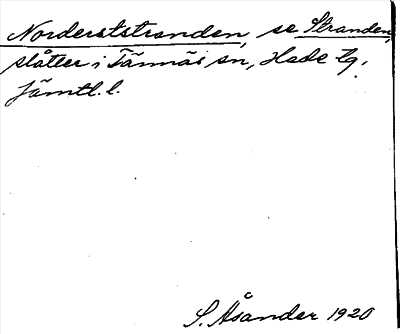 Norderststranden, se Stranden,
slåtter i Tännäs sn, Hede tg,
Jämtl. l.
S. Åsander 1920